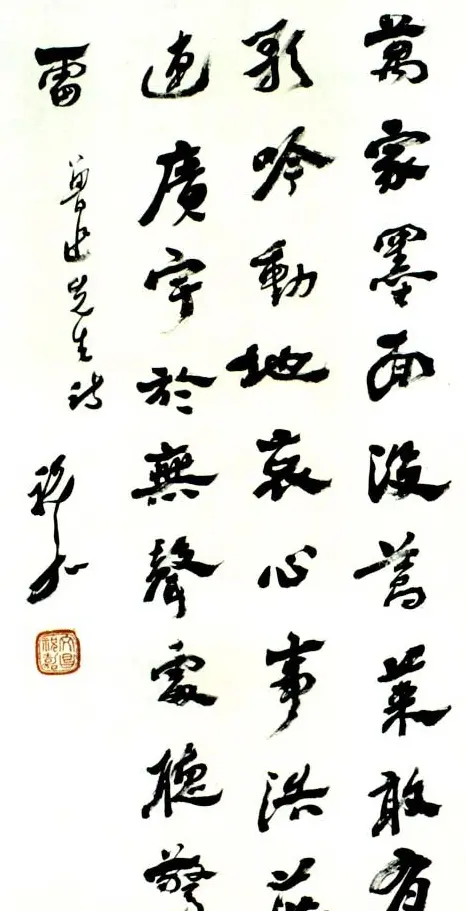 萬家墨面沒蒿萊敢有
歌吟動地哀心事浩茫
連廣宇於無聲處聽驚
雷
魯迅先生詩
祝嘉
文昌祝嘉